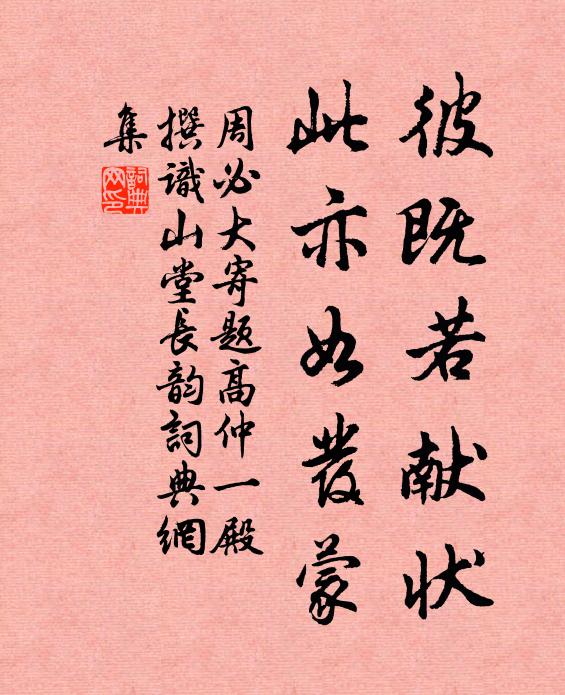 彼既若献状
此亦如發蒙
周必大寄题高仲一殿
撰識山堂長韵詞典網
集
詞典网印